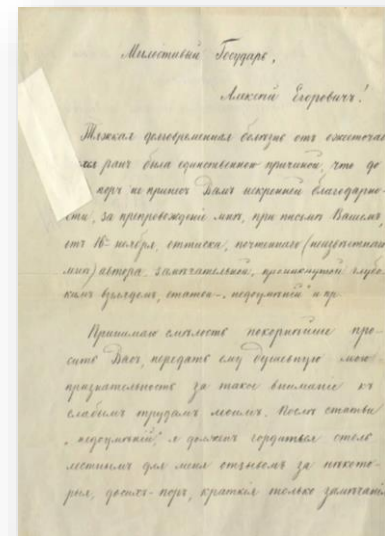 Милостивый Государь,
Алексѣй Егоровичъ!
Тяжкая долговременная болѣзнь отъ ожесточав
ранъ была единственною причиною, что до
поръ не принесъ Вамъ искренней благодарно-
сти, за препровожденіе мнѣ, при письмѣ Вашемъ,
отъ 16го ноября, оттиска, почтеннаго (неизвѣстнаго
мнѣ) автора замѣчательной, проникнутой глубо-
кимъ взглядомъ, статьи "недоумѣній" и пр.
Принимаю смѣлость покорнѣйше про-
сить Васъ, передать ему душевную мою
признательность за такое вниманіе къ
слабымъ трудамъ моимъ. Послѣ статьи
"недоумѣній", я долженъ гордиться столь
лестнымъ для меня отзывомъ за нѣкото-
рыя, досихъ-поръ, краткія только замѣчанія